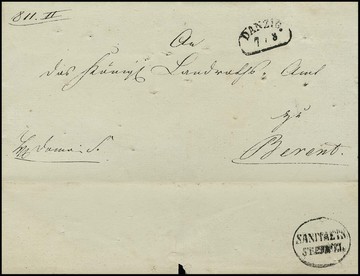 811. II
DANZIG
7 / 8
An
das Königl Landraths-Amt
zu
Berent.
SANITAETS
STEMPEL